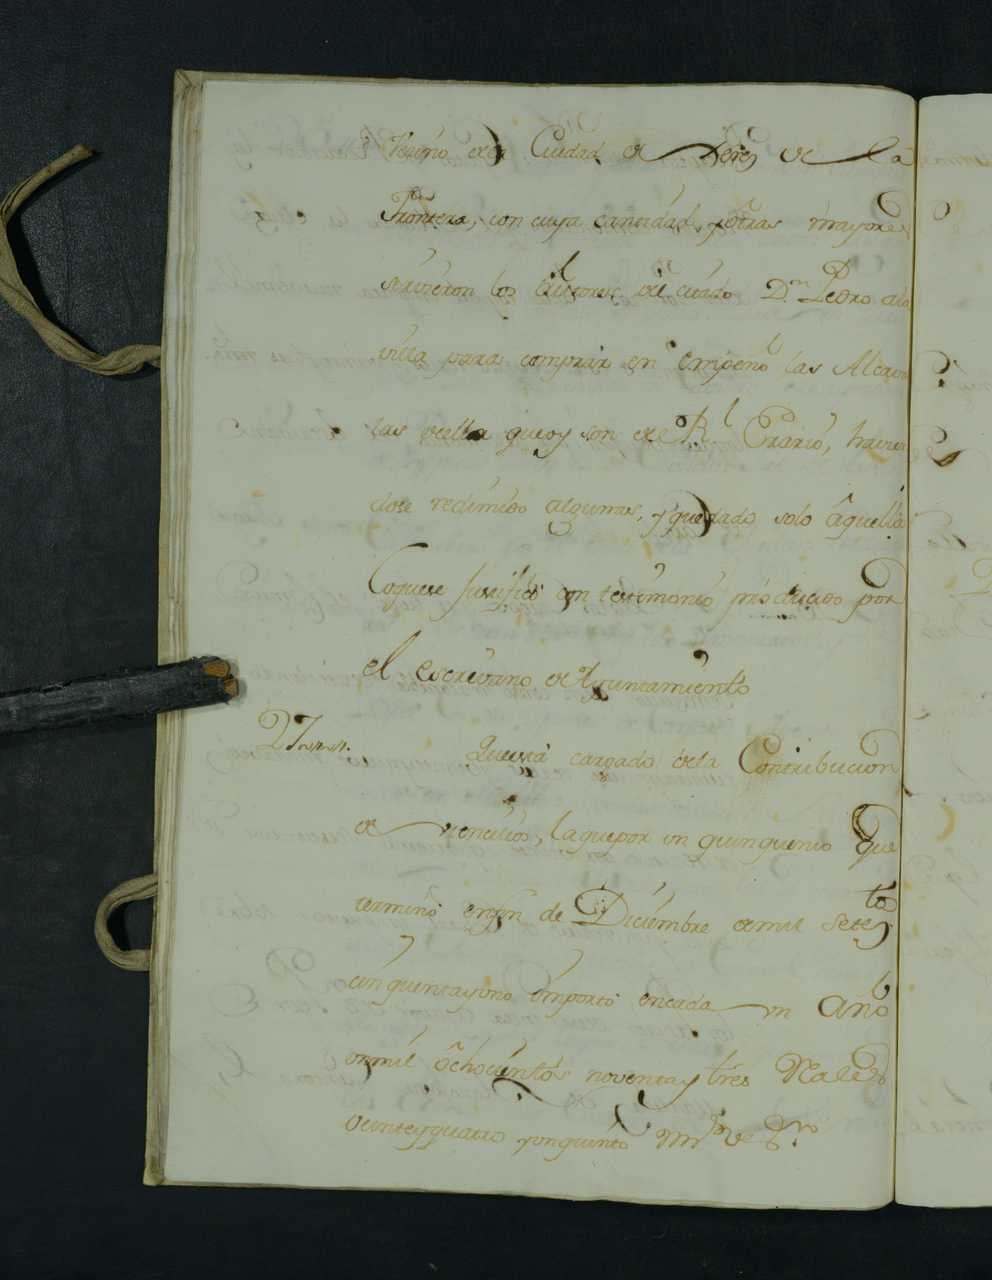 Vecino de la Ciudad de Xerez de la
Frontera, con cuya cantidad, y otras mayores
sirvieron los Autores del citado Dn. Pedro a la
villa para comprar en empeño las Alcava
las de ella que oy son de el Rl. Erario, havien
dose redimido algunas, y quedado solo aquella
Loque se justificó con testimonio producido por
el escrivano de Ayuntamiento
27 Que está cargado de la Contribucion
de utencilios, la que por un quinquenio que
terminó en fin de Diciembre de mil setectos
cinquenta y uno importó en cada un Año
un mil ôchocientos noventa y tres Rales
veinte y quatro y un quinto mrs. de Vn.